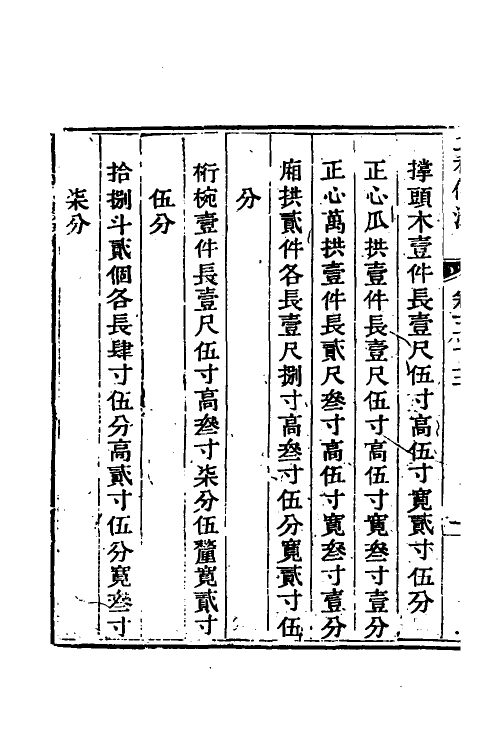 撑頭木壹件長壹尺伍寸高伍寸寬貳寸伍分
正心瓜拱壹件長壹尺伍寸高伍寸寬叄寸壹分
正心萬拱壹件長貳尺叄寸高伍寸寬叄寸壹分
廂拱貳件各長壹尺捌寸高叄寸伍分寬貳寸伍
分
桁椀壹件長壹尺伍寸高叄寸柒分伍釐寬貳寸
伍分
拾捌斗貳個各長肆寸伍分高貳寸伍分寬叄寸
柒分